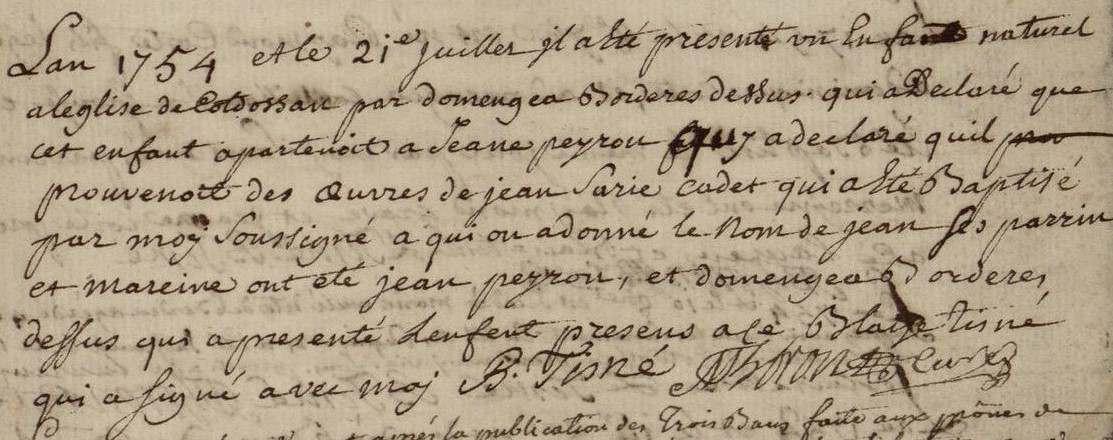 Lan 1754 et le 21e juillet jl a êté presenté vn Enfant naturel
a leglise de Coldossan par domengea Borderes dessus qui a Declaré que
cet enfant apartenoit a Jeane peyrou quy a declaré quil
prouvenoit des œuvres de jean Sarie cadet qui a êté Baptisé
par moy Soussigné a qui on a donné le nom de jean ses parrin
et mareine ont eté jean peyrou, et domengea Borderes
dessus qui a presenté Lenfent presens a ce Blaize tisné
qui a signé avec moy B. Tisné Curé
la publication des Trois Bans faite aux prônes de